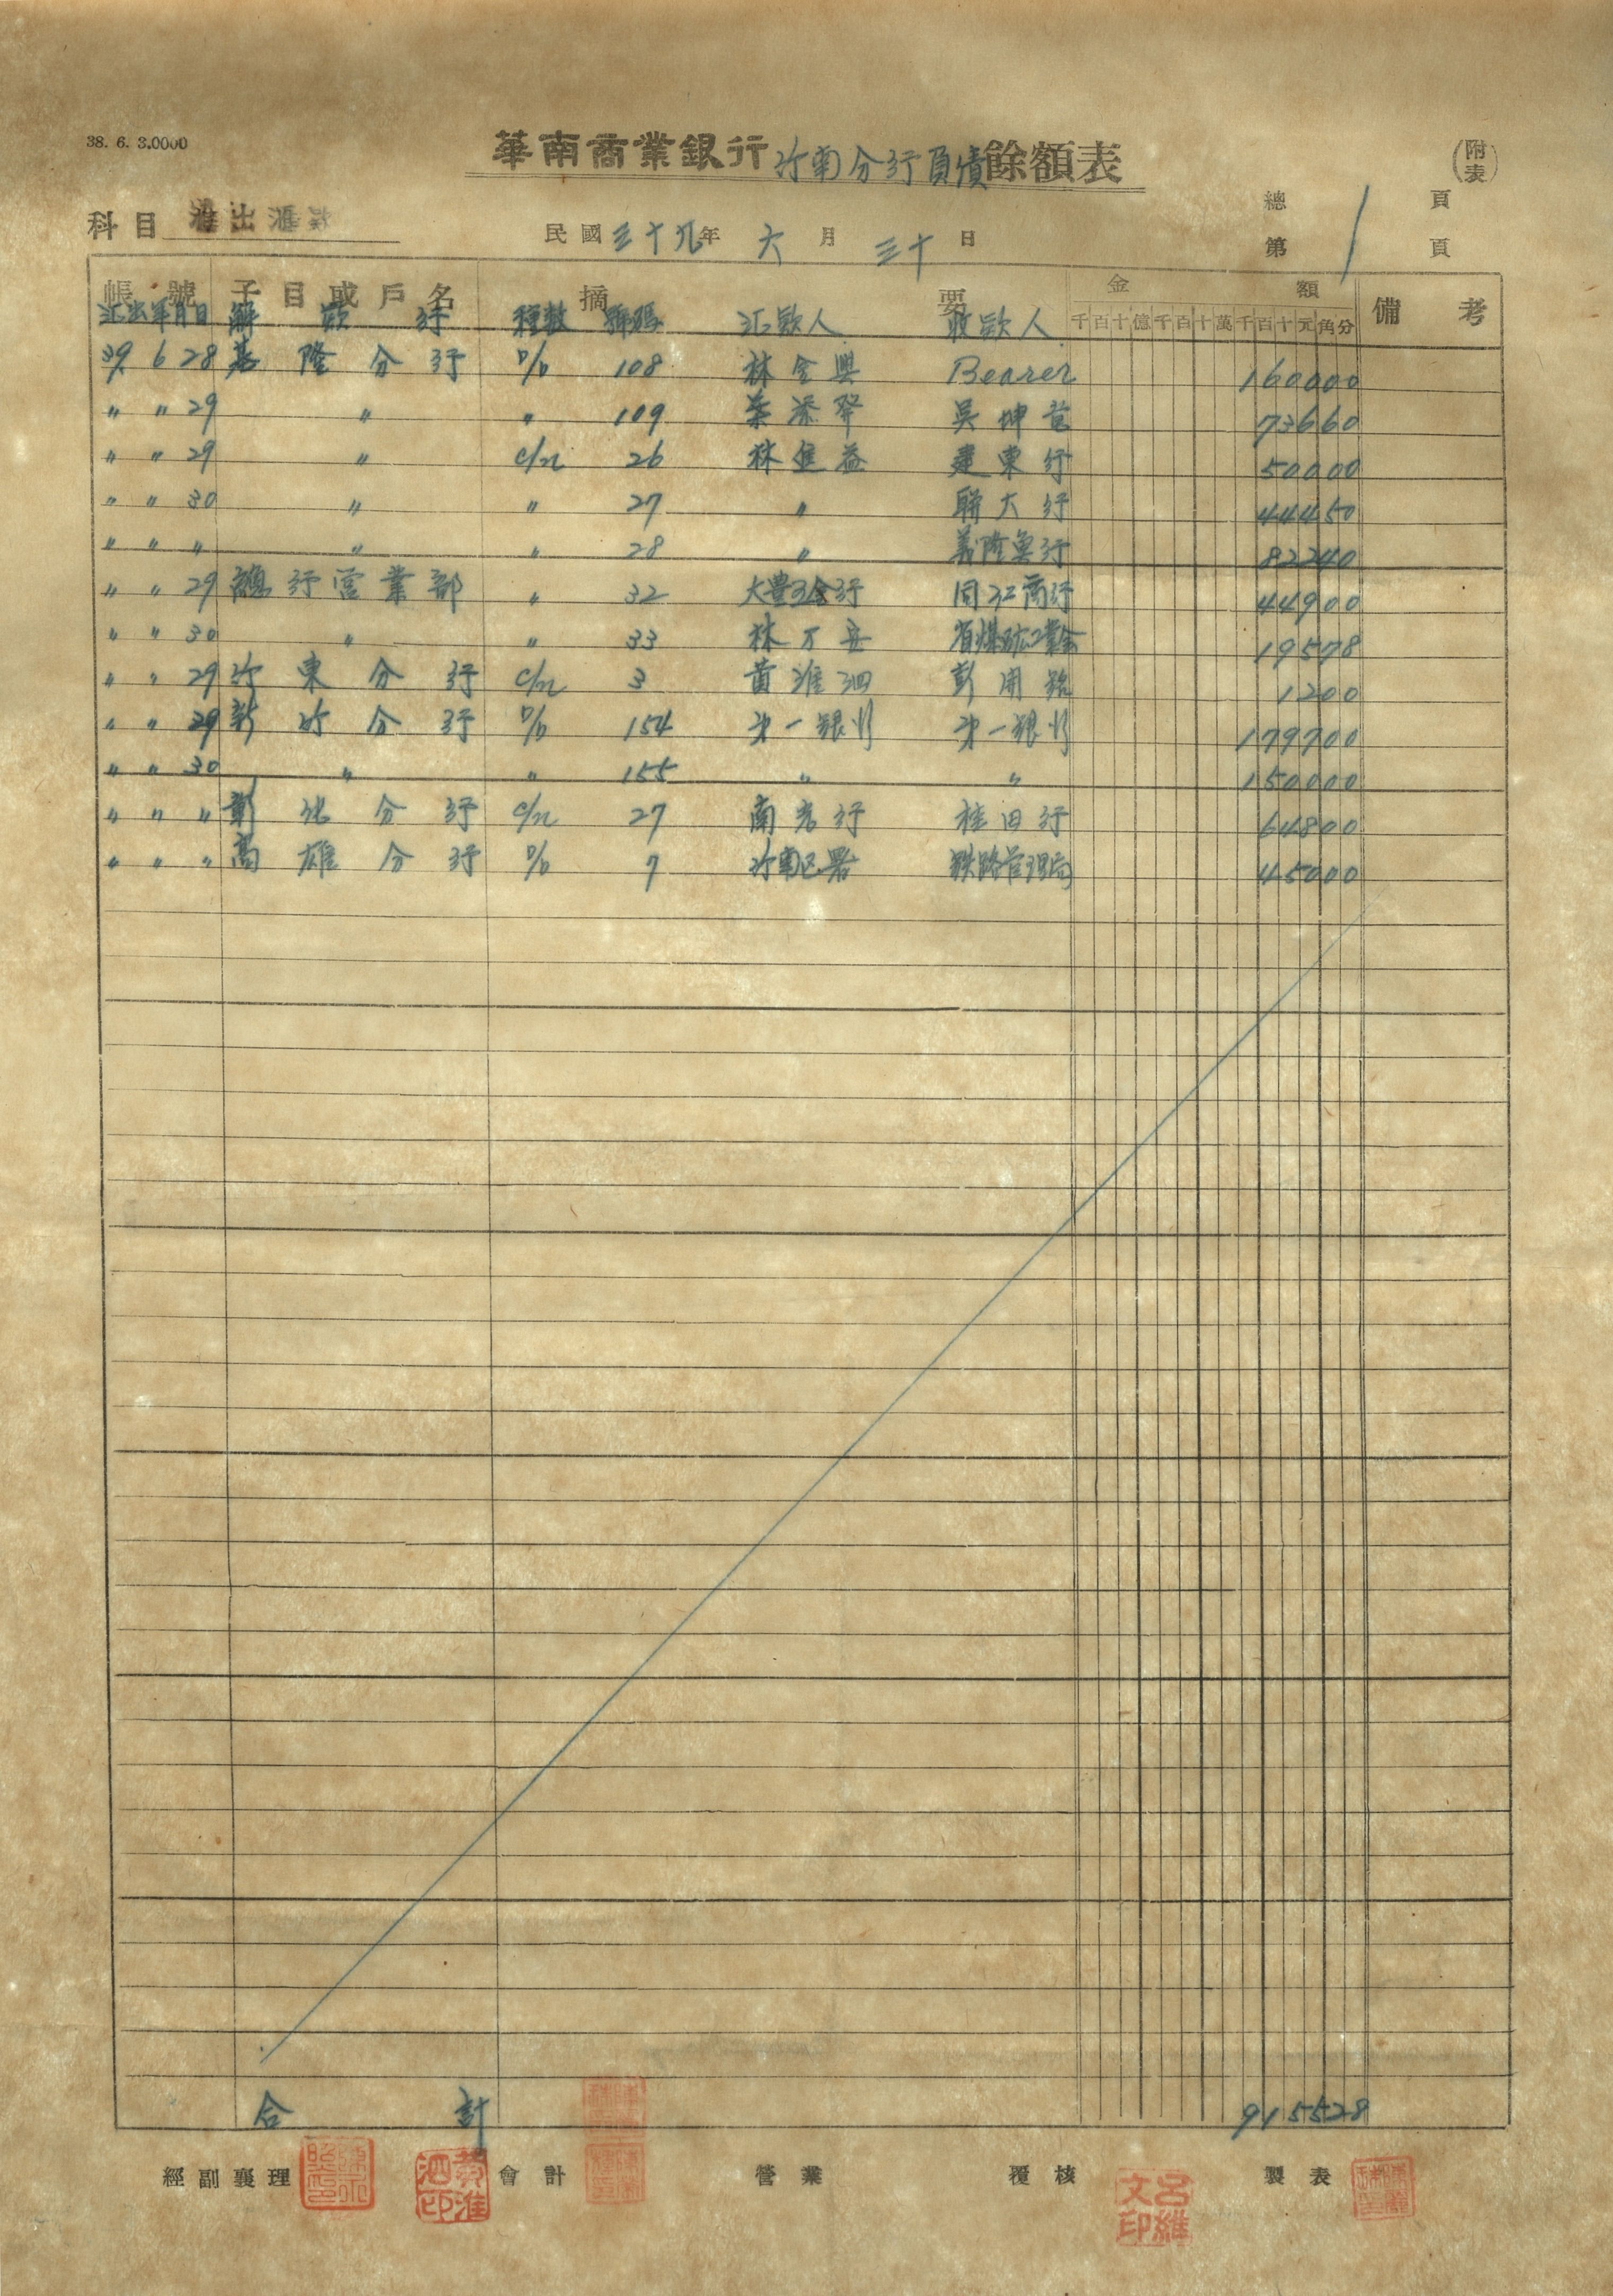 38. 6. 3.0000
華南商業銀行竹南分行負債餘額表
(附表)
總 1 頁
科目 滙出滙款 民國三十九年六月三十日 第 1 頁
帳號 子目或戶名 摘要 金額 備考
汇出年月日 解款行 種類 號碼 汇款人 收款人 千百十億千百十萬千百十元角分
39 6 28 基隆分行 D/D 108 林金興 Bearer 160000
〃 〃 29 〃 〃 109 葉添發 吳坤 73660
〃 〃 29 〃 C/N 26 林進益 建東行 50000
〃 〃 30 〃 〃 27 〃 聯大行 44450
〃 〃 〃 〃 〃 28 〃 義隆魚行 82240
〃 〃 29 總行营業部 〃 32 大豊行 同江商行 44900
〃 〃 30 〃 〃 33 林万 省煤矿工業会 19578
〃 〃 29 竹東分行 C/N 3 黃淮泗 彭開 1200
〃 〃 29 新竹分行 D/D 154 第一銀行 第一銀行 179700
〃 〃 30 〃 〃 155 〃 〃 150000
〃 〃 〃 彰化分行 C/N 27 南光行 桂田行 64800
〃 〃 〃 高雄分行 D/D 7 竹南区署 鉄路管理局 45000
合計 915528
經副襄理 黃淮泗印 會計 營業 覆核 呂維文印 製表